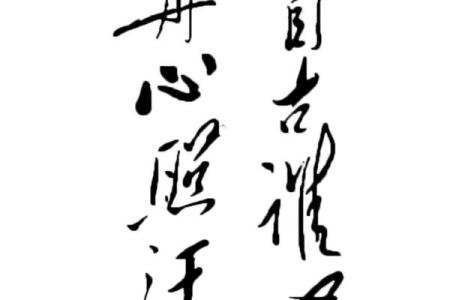 自古谁
丹心照汗